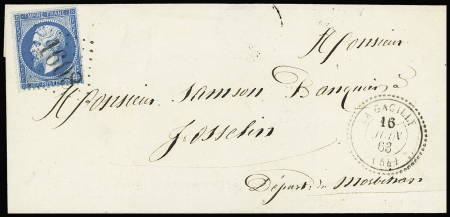 EMPIRE FRANC
Monsieur
Monsieur Samson Banquier à
Josselin
Départ. du Morbihan
LA GACILLY
16
63
(54)